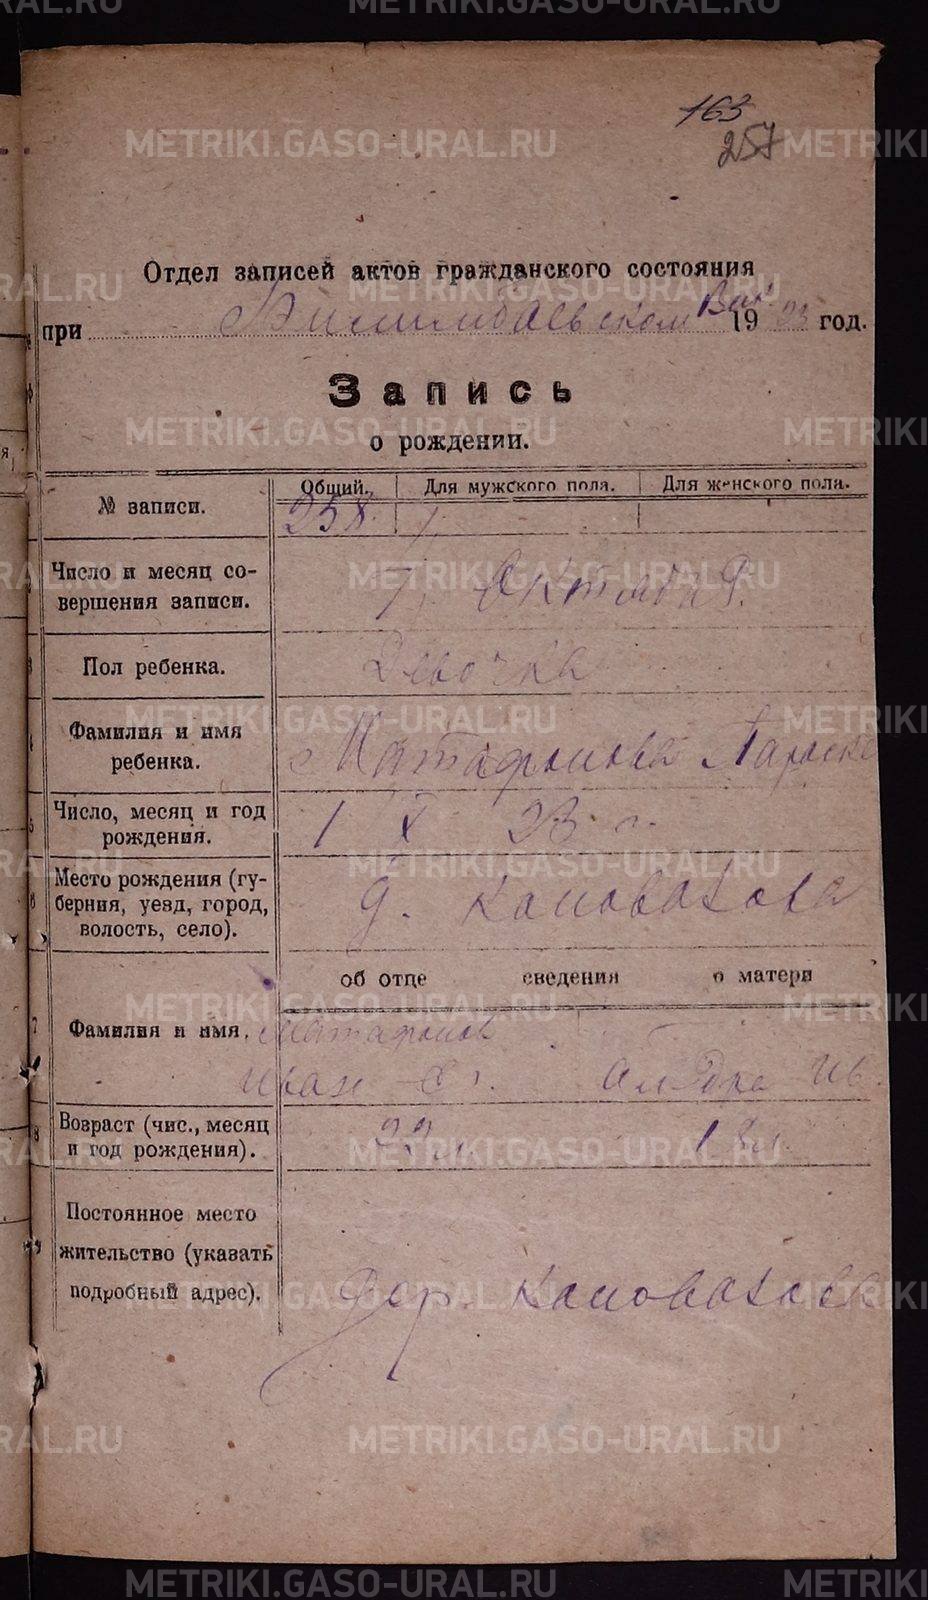 163
257
Отдел записей актов гражданского состояния
при Билимбаевском Вик. 1923 год.
Запись
о рождении.
№ записи.
Общий. Для мужского пола. Для женского пола.
258.
Число и месяц со-
вершения записи.
7. Октября.
Пол ребенка.
Девочка
Фамилия и имя
ребенка.
Матафонова
Число, месяц и год
рождения.
1 X 23 г.
Место рождения (гу-
берния, уезд, город,
волость, село).
д. Коновалова
об отце сведения о матери
Фамилия и имя.
Матафонов
Иван Ив.
Возраст (чис., месяц
и год рождения).
22 л. 18 л.
Постоянное место
жительство (указать
подробный адрес).
Дер. Коновалова
METRIKI.GASO-URAL.RU